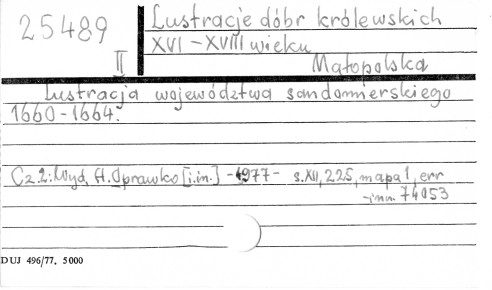 25489
II
Lustracje dóbr królewskich
XVI - XVIII wieku
Małopolska
Lustracja województwa sandomierskiego
1660-1664.
Cz.2: Wyd. H. Oprawko [i.in.] - 1977 - s. XII, 225, mapa 1, err
- inw. 74053
DUJ 496/77, 5000